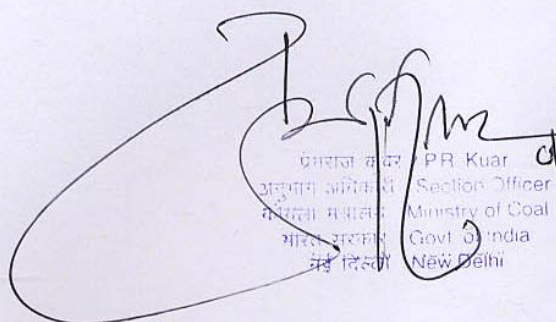 प्रेमराज कुवर / PR Kuar
अनुभाग अधिकारी / Section Officer
कोयला मंत्रालय / Ministry of Coal
भारत सरकार / Govt of India
नई दिल्ली / New Delhi